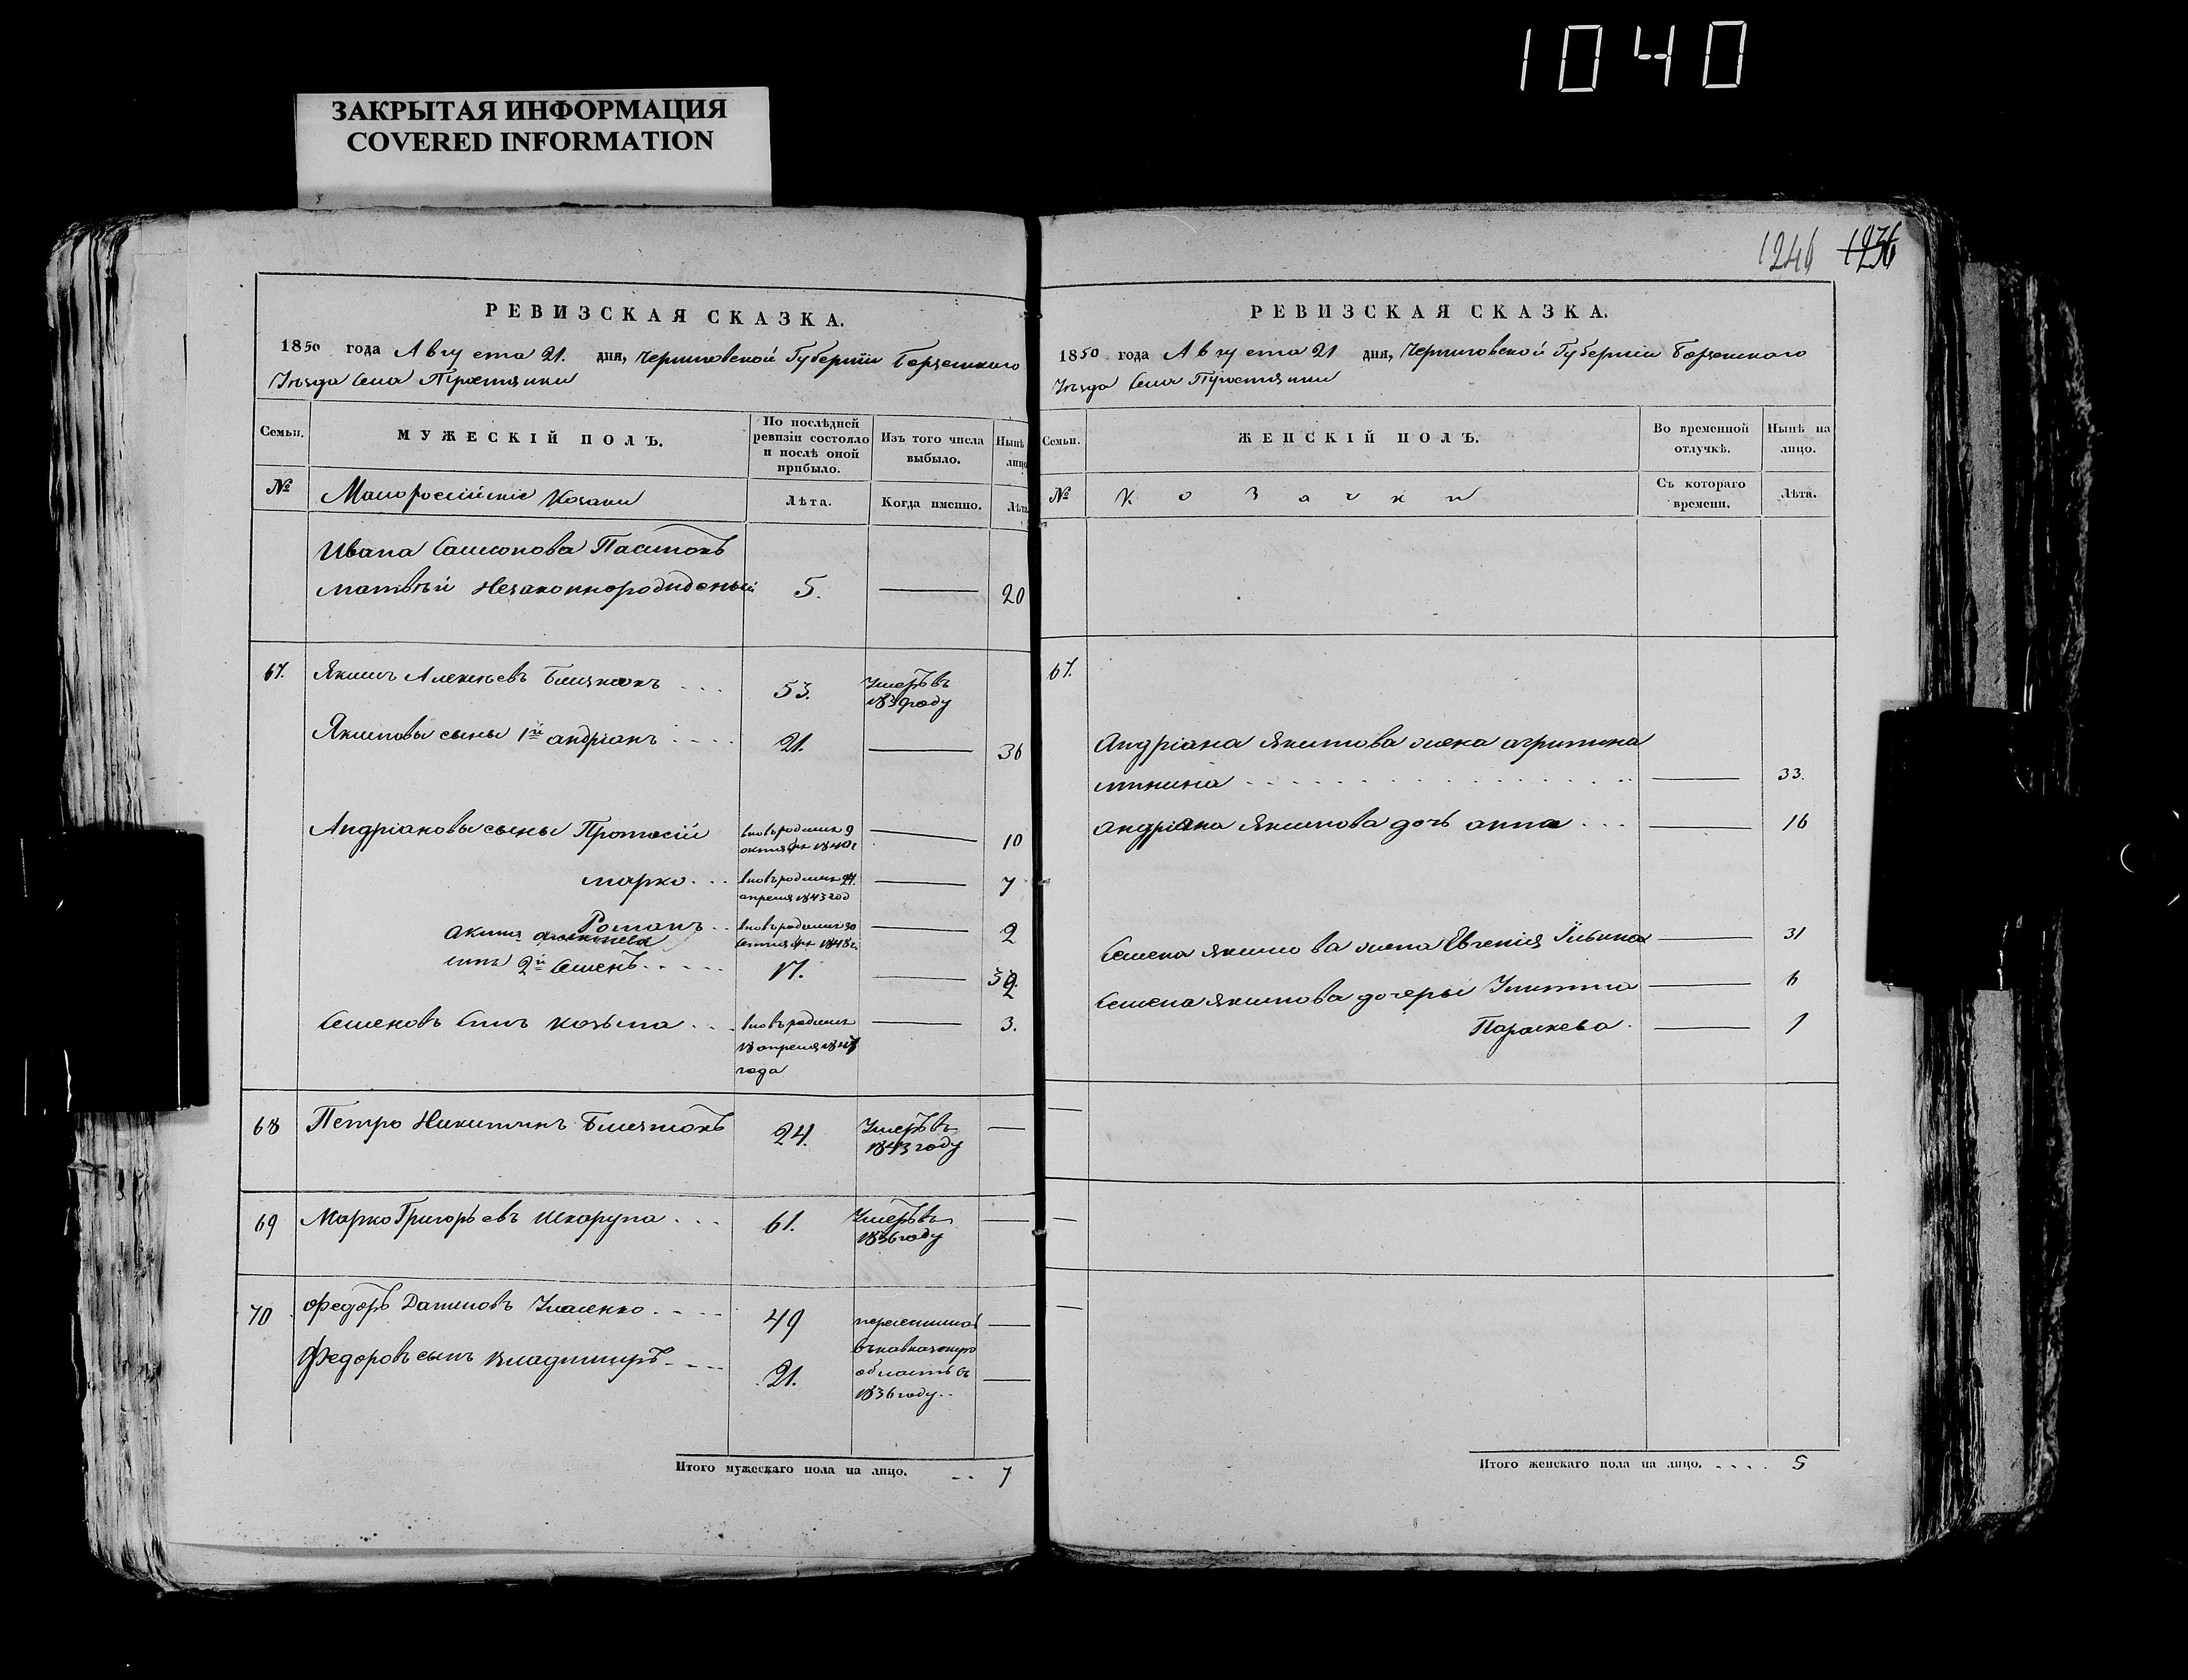 1040
ЗАКРЫТАЯ ИНФОРМАЦИЯ
COVERED INFORMATION
РЕВИЗСКАЯ СКАЗКА.
1850 года Августа 21. дня, Черниговской Губернiи Борзенского
Уѣзда Села
Семьи.
МУЖЕСКІЙ ПОЛЪ.
По послѣдней ревизіи состояло и послѣ оной прибыло.
Изъ того числа выбыло.
Нынѣ
лицо
№
Малороссійскіе Козаки
Лѣта.
Когда именно.
Лѣта
Ивана Самсонова Пасинокъ
Матвѣй Незаконнорожденный 5. — 20
67. Якимъ Алексѣевъ 53. Умеръ въ
1839 году
Якимовы сыны 1й андріанъ 21. — 36
Андріановы сыны Протасій вновь родился 9 — 10
октября 1840 г
марко вновь родился 27. — 7
апреля 1843 год
Романъ вновь родился 30 — 2
сентября 1848 г.
Акима Алексѣева
сынъ 2й Семенъ 17. — 32
Семеновъ сынъ козьма вновь родился — 3.
18 апреля 1847
года
68 Петро Никитинъ 24. Умеръ въ —
1843 году
69 Марко Григорьевъ Шкарупа 61. Умеръ въ —
1836 году
70 Федоръ Даниловъ 49 переселились —
въ кавказскую
Федоровъ сынъ владимиръ 21. область въ —
1836 году
Итого мужескаго пола на лицо. 7
1246 1236
РЕВИЗСКАЯ СКАЗКА.
1850 года Августа 21 дня, Черниговской Губерніи Борзенского
Уѣзда Села
Семьи.
ЖЕНСКІЙ ПОЛЪ.
Во временной отлучкѣ.
Нынѣ на лицо.
№
Козачки
Съ котораго времени.
Лѣта.
67.
Андріана Якимова жена агрипина
минина — 33.
андріана Якимова дочь анна — 16
Семена Якимова жена Евгенія Ильина — 31
Семена Якимова дочеры Улита — 6
Параскева — 1
Итого женскаго пола на лицо. 5